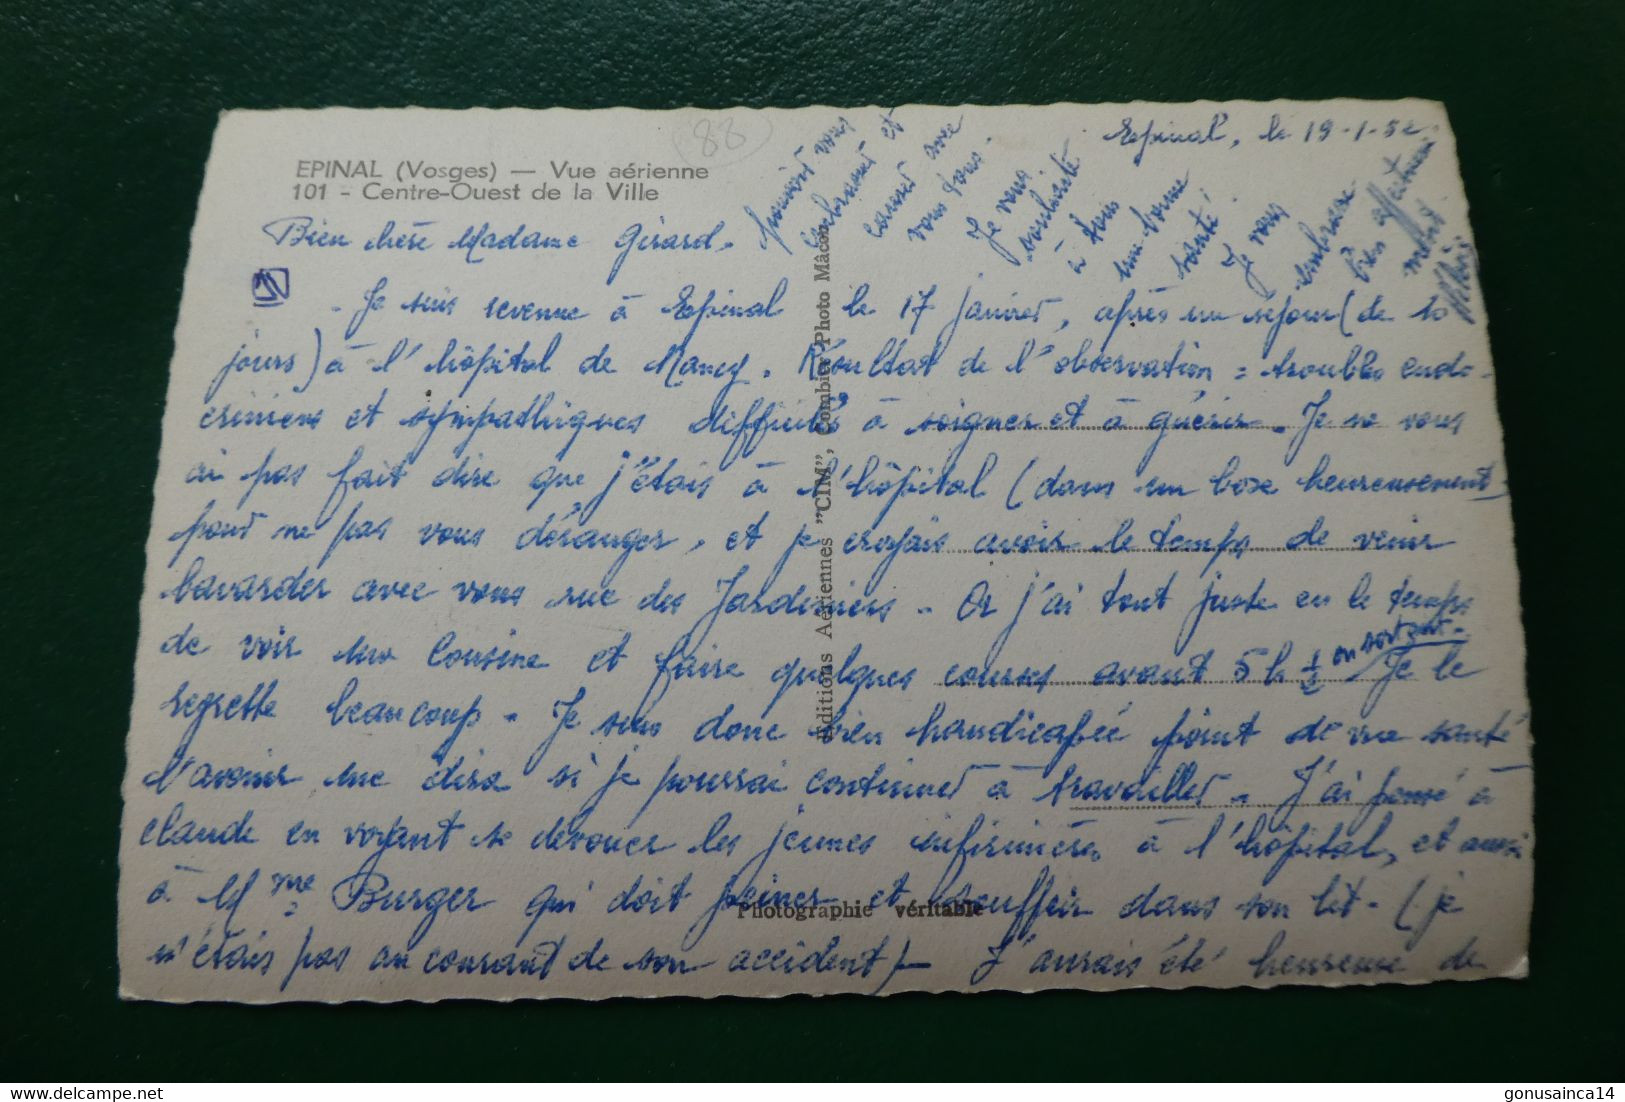 88
EPINAL (Vosges) — Vue aérienne
101 - Centre-Ouest de la Ville
Epinal, le 19-1-52
Bien chère Madame Girard.
. Je suis revenue à Epinal le 17 janvier, après un séjour (de 10
jours) à l'hôpital de Nancy. Résultat de l'observation = troubles endo-
criniens et sympathiques difficiles à soigner et à guérir. Je ne vous
ai pas fait dire que j'étais à l'hôpital (dans un box heureusement)
pour ne pas vous déranger, et je croyais avoir le temps de venir
bavarder avec vous rue des Jardiniers. Or j'ai tout juste eu le temps
de voir une cousine et faire quelques courses avant 5 h ½ en sortant. Je le
regrette beaucoup. Je suis donc bien handicapée point de vue santé
l'avenir me dira si je pourrai continuer à travailler. J'ai pensé à
Claude en voyant se dévouer les jeunes infirmières à l'hôpital, et aussi
à Mme Burger qui doit peiner et souffrir dans son lit. (je
n'étais pas au courant de son accident) - J'aurais été heureuse de
pouvoir vous
embrasser et
causer avec
vous tous.
Je vous
souhaite
à tous
une bonne
santé.
Je vous
embrasse
bien affectueu
sement
Editions Aériennes "CIM", Combier Photo Mâcon
Photographie véritable
delcampe.net
gonusainca14